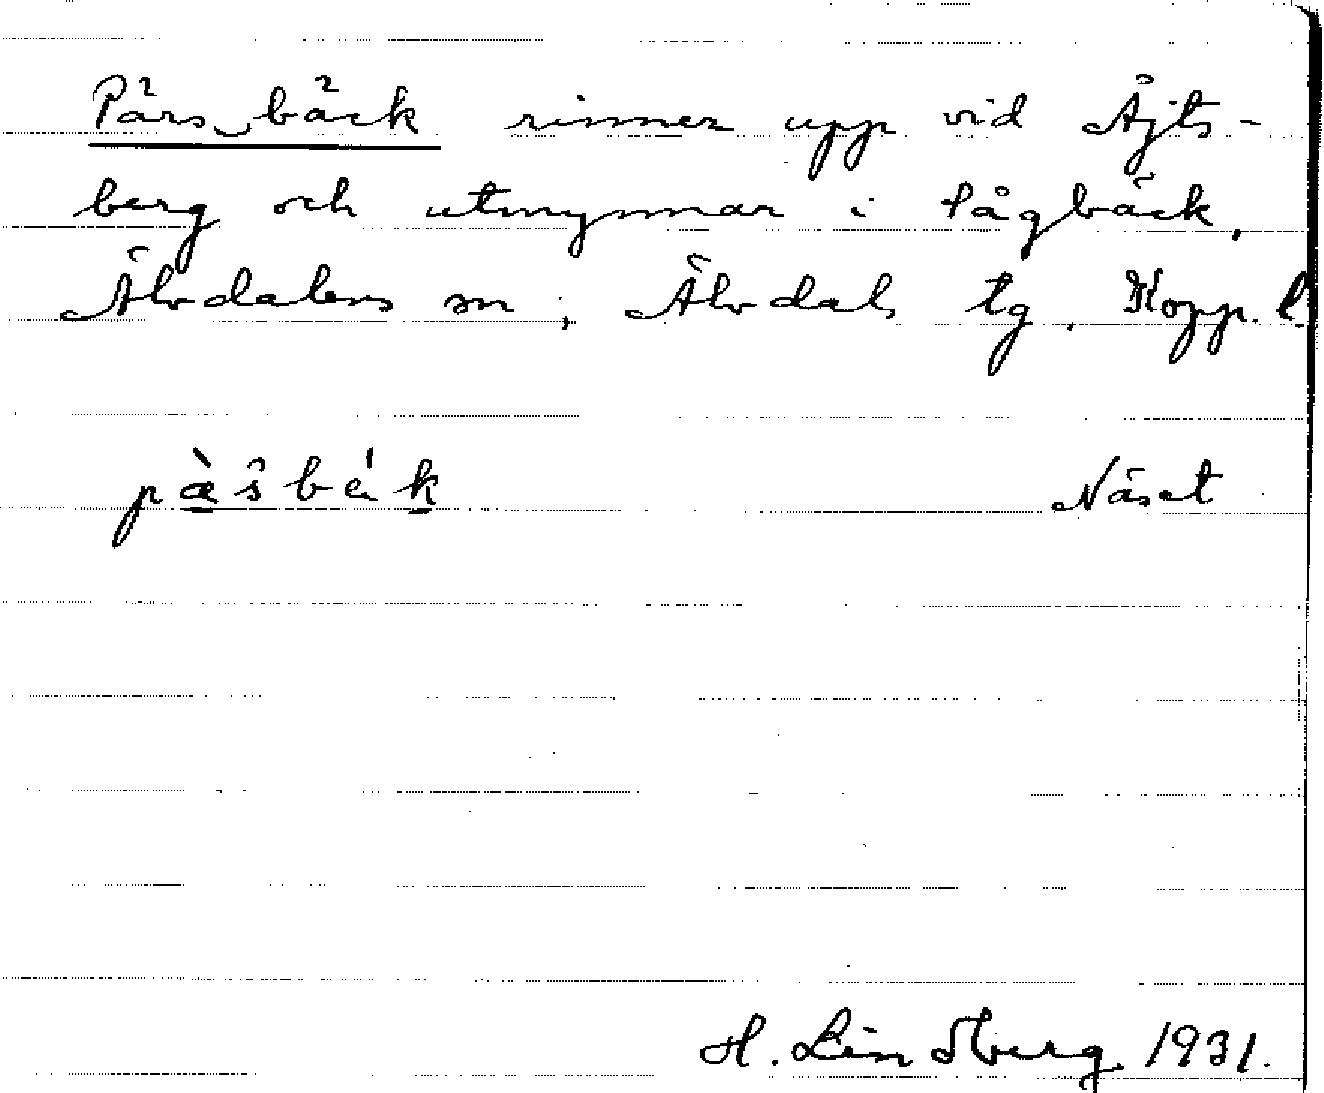 Pärs bäck rinner upp vid Äjts-
berg och utmynnar i Tågbäck,
Älvdalens sn, Älvdals tg, Kopp. l.
Näset
H. Lindberg 1931.